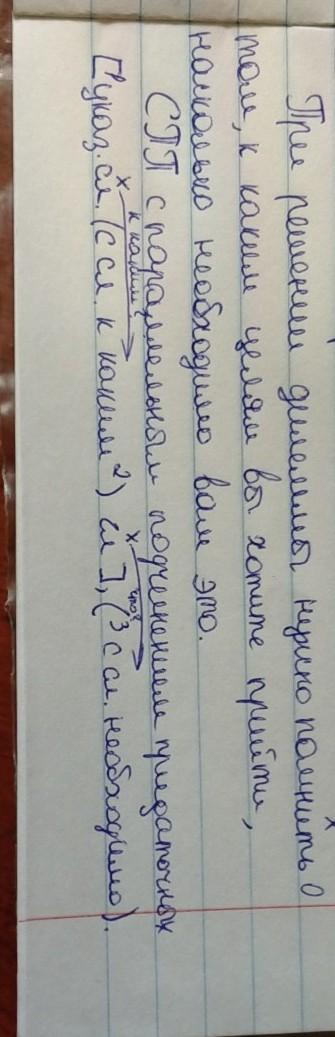 При решении дилеммы нужно помнить о
том, к каким целям вы хотите прийти,
насколько необходимо вам это.
СПП с параллельным подчинением придаточных
х к каким? х что?
[ указ. сл. (с сл. к каким ²) гл ], (³ с сл. необходимо).